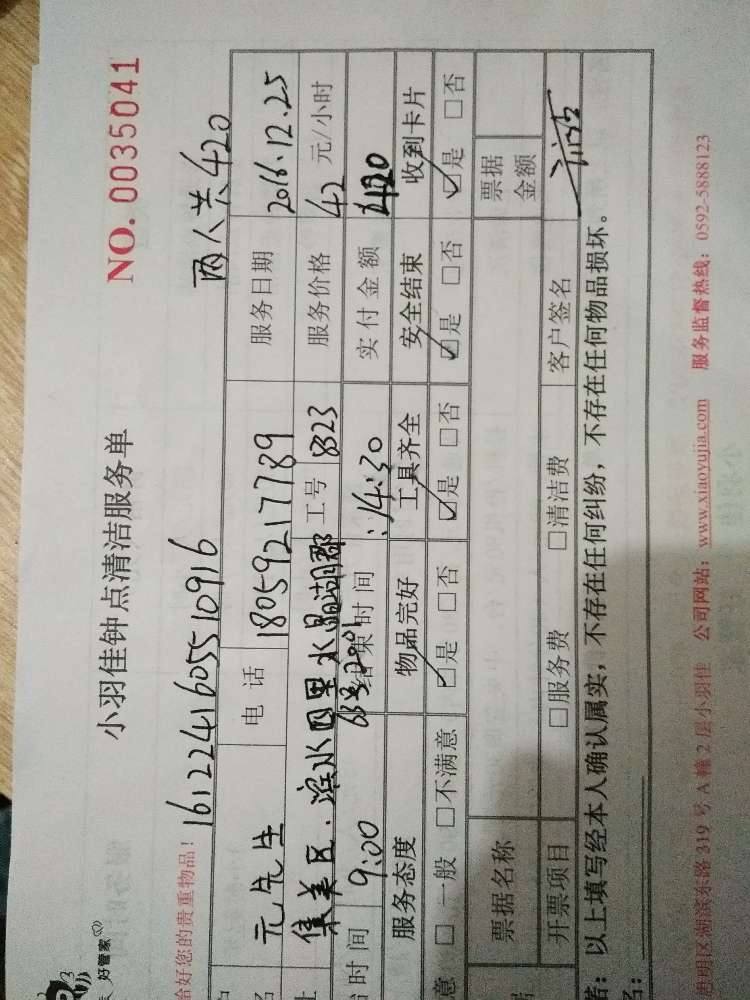 好管家
小羽佳钟点清洁服务单
NO. 0035041
恰好您的贵重物品！
16122416055510916
两人共420
元先生
电 话
18059217789
服务日期
2016.12.25
集美区·滨水四里水晶湖郡
63号2001
工号
8323
服务价格
42 元/小时
时间
9:00
结束时间
14:30
实付金额
420
服务态度
物品完好
工具齐全
安全结束
收到卡片
意 □一般 □不满意
☑是 □否
☑是 □否
☑是 □否
☑是 □否
票据名称
票据金额
开票项目
□服务费
□清洁费
客户签名
：以上填写经本人确认属实，不存在任何纠纷，不存在任何物品损坏。
思明区湖滨东路 319 号 A 幢 2 层小羽佳
公司网站：www.xiaoyujia.com
服务监督热线：0592-5888123